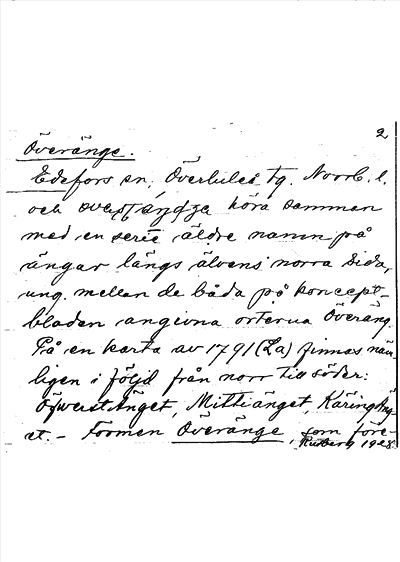 2
Överänge.
Edefors sn, Överluleå tg. Norrb. l.
och höra samman
med en serie äldre namn på
ängar längs älvens norra sida,
ung. mellan de båda på koncept-
bladen angivna orterna Överäng.
På en karta av 1791 (La) finnas näm-
ligen i följd från norr till söder:
Öfwerst Änget, Mittiänget, KäringÄng
et. – Formen Överänge, som före-
Rutberg 1928